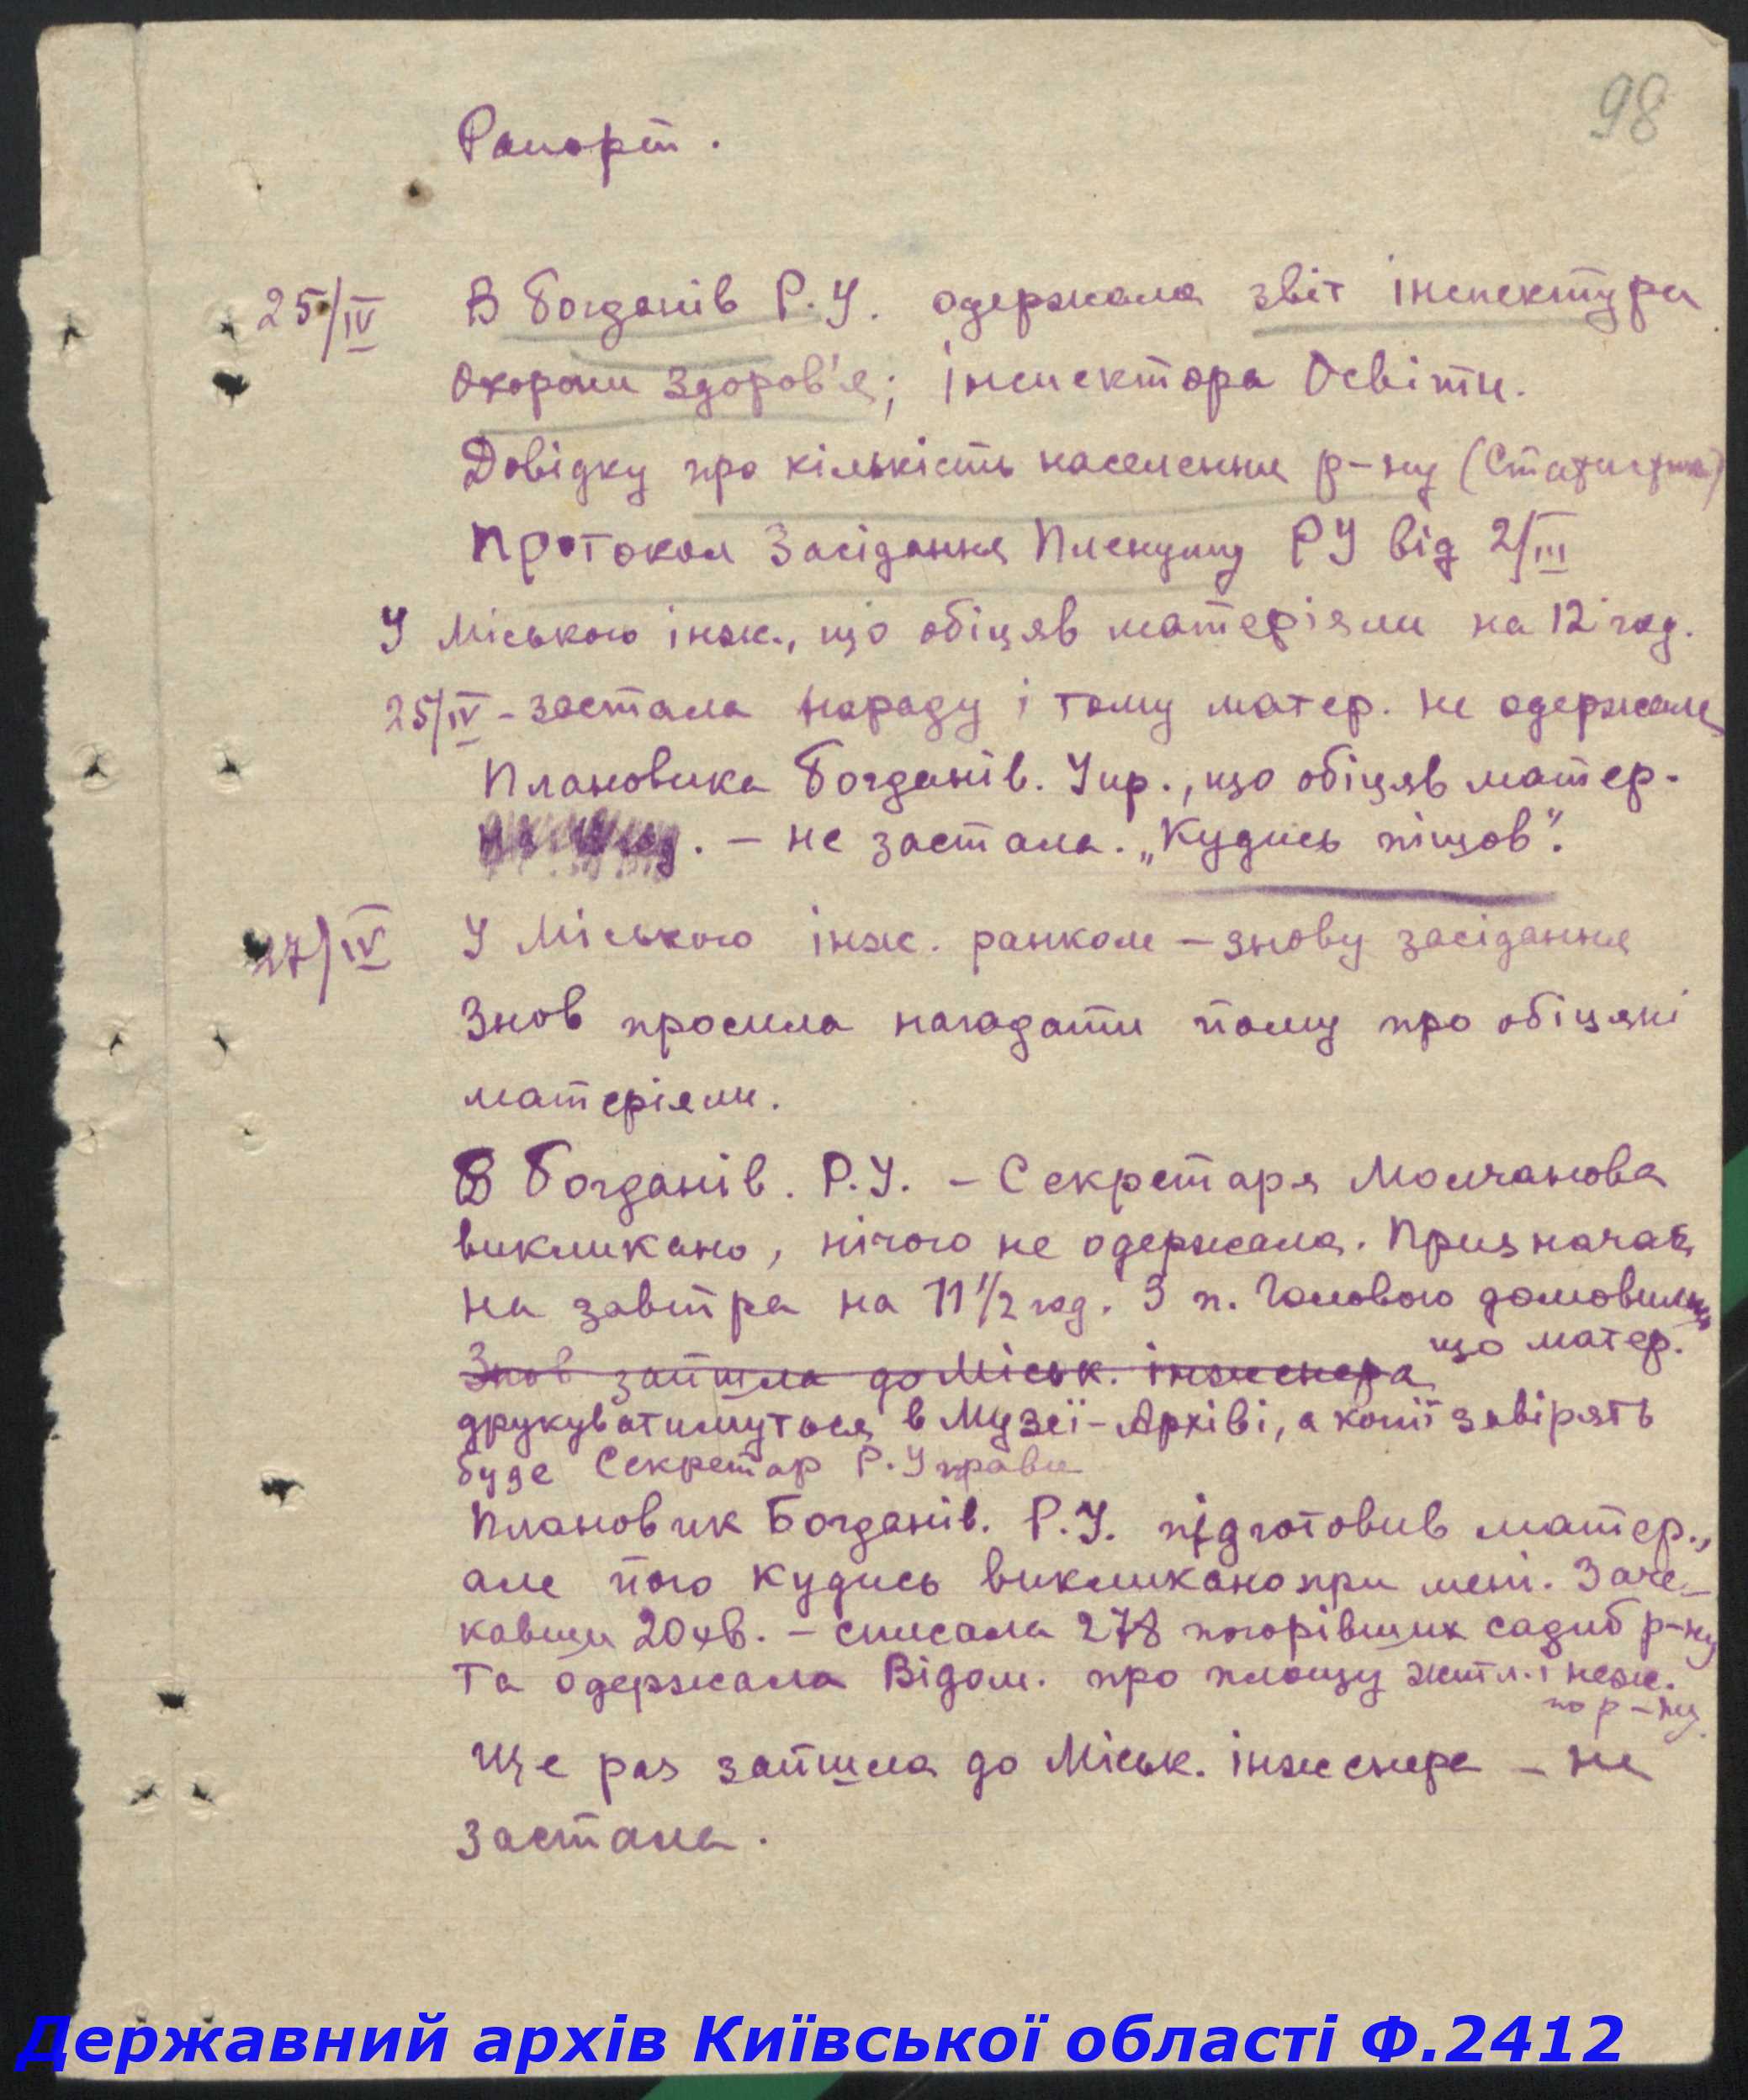 98
Рапорт.
25/IV В Богданів Р.У. одержала звіт інспектури
Охорони Здоров'я; інспектора Освіти.
Довідку про кількість населення р-ну (Статистика)
Протокол Засідання Пленуму РУ від 2/III
У Міського інж., що обіцяв матеріяли на 12 год.
25/IV - застала нараду і тому матер. не одержала
Плановика Богданів. Упр., що обіцяв матер.
. – не застала. „Кудись пішов".
27/IV У Міського інж. ранком – знову засідання
Знов просила нагадати йому про обіцяні
матеріяли.
В Богданів. Р.У. – Секретаря Молчанова
викликано, нічого не одержала. Призначав
на завтра на 11 1/2 год. З п. Головою домовилась
що матер.
Знов зайшла до Міськ. інженера
друкуватимуться в Музеї-Архіві, а копії завірять
буде Секретар Р.Управи
Плановик Богданів. Р.У. підготовив матер.,
але його кудись викликано при мені. Заче-
кавши 20 хв. – списала 278 погорівших садиб р-ну
Та одержала Відом. про площу житл. і неж.
по р-ну.
Ще раз зайшла до Міськ. інженера – не
застала.
Державний архів Київської області Ф.2412